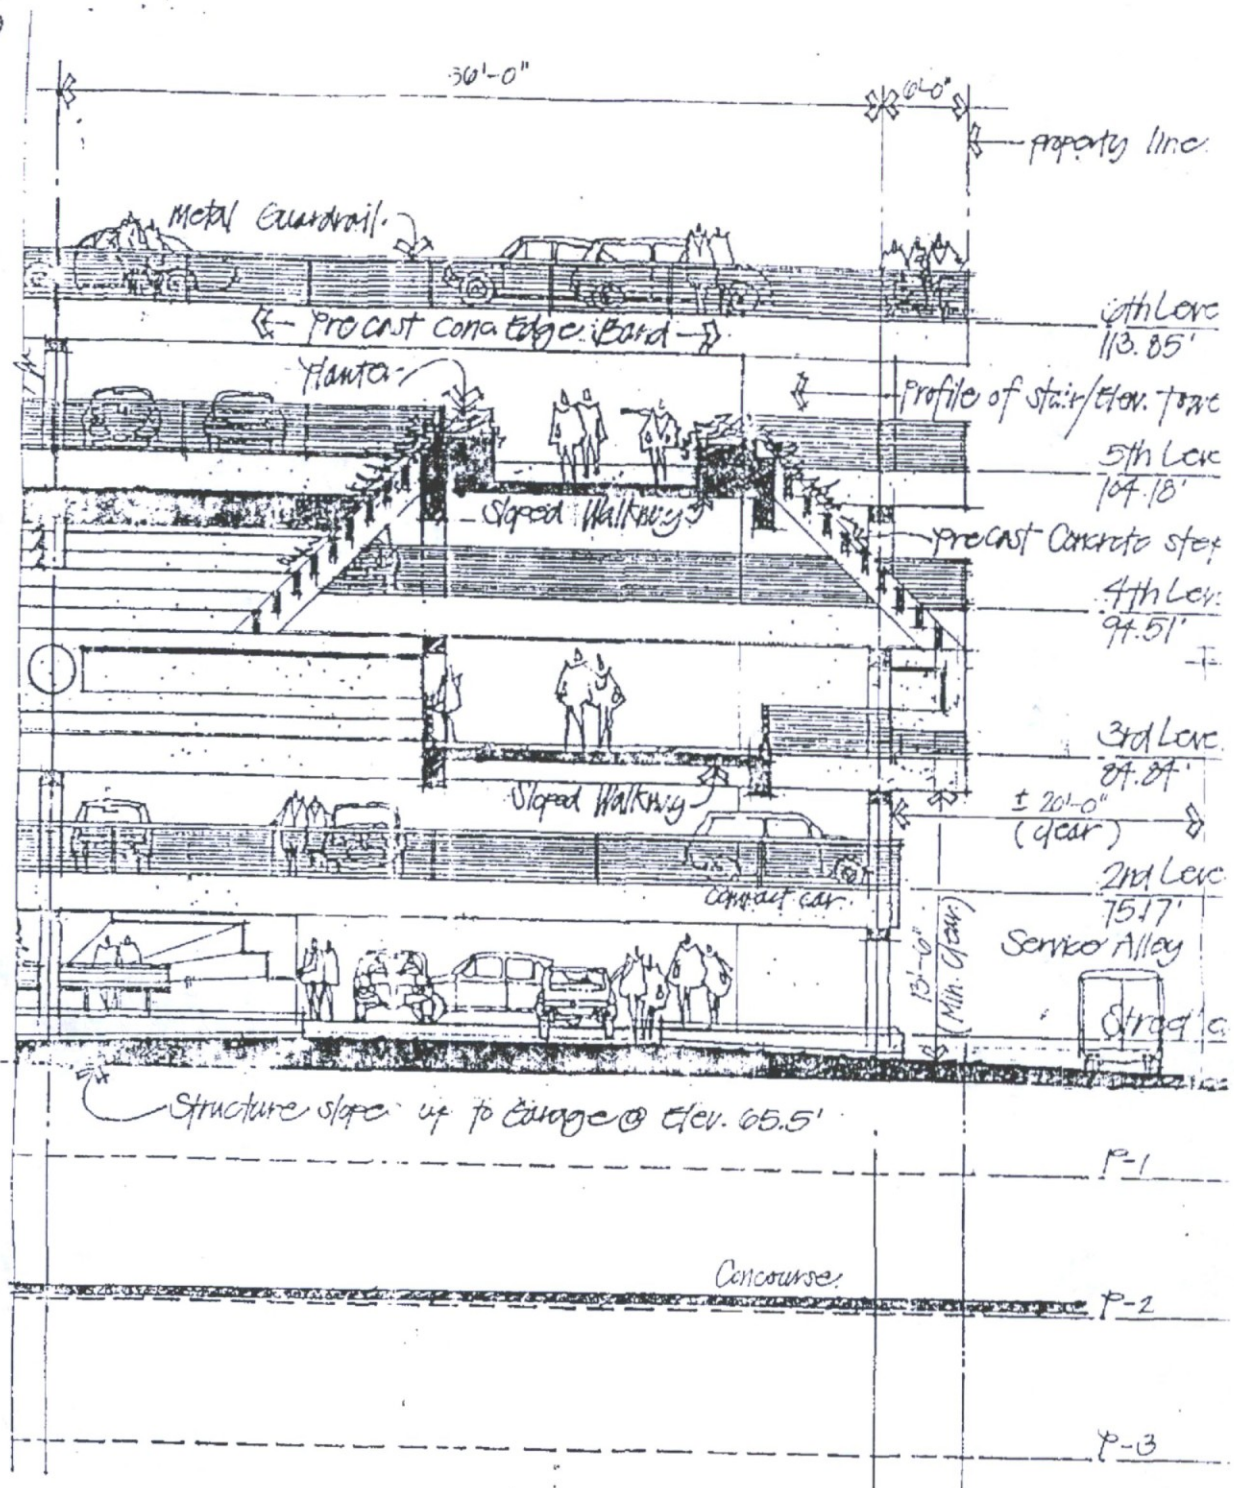 36'-0"
6'-0"
property line.
Metal Guardrail.
6th Leve
113.85'
Precast Conc. Edge Band
Planter
Profile of stair/Elev. Towe
5th Leve
104.18'
Sloped Walkway
Precast Concrete step
4th Lev
94.51'
3rd Leve
84.84'
Sloped Walkway
± 20'-0"
(clear)
2nd Leve
75.17'
compact car
Service Alley
13'-6"
(Min. Clear)
Structure slope up to Garage @ Elev. 65.5'
P-1
Concourse
P-2
P-3